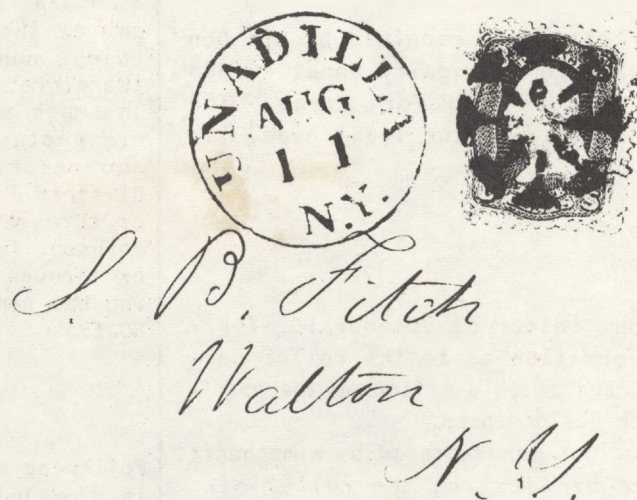 UNADILLA
AUG
11
N.Y.
S. B. Fitch
Walton
N.Y.